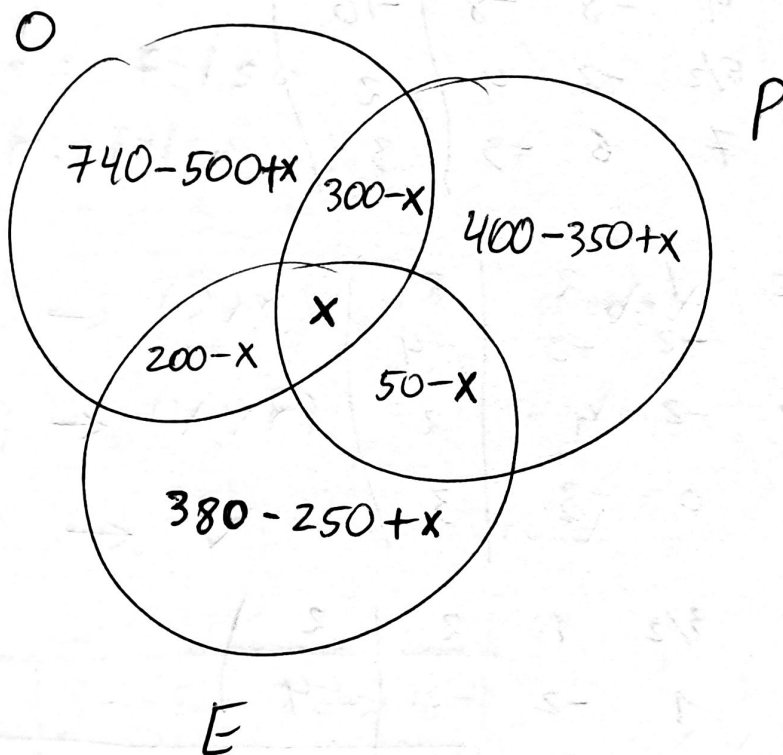 O
P
740-500+x
300-x
400-350+x
x
200-x
50-x
380-250+x
E